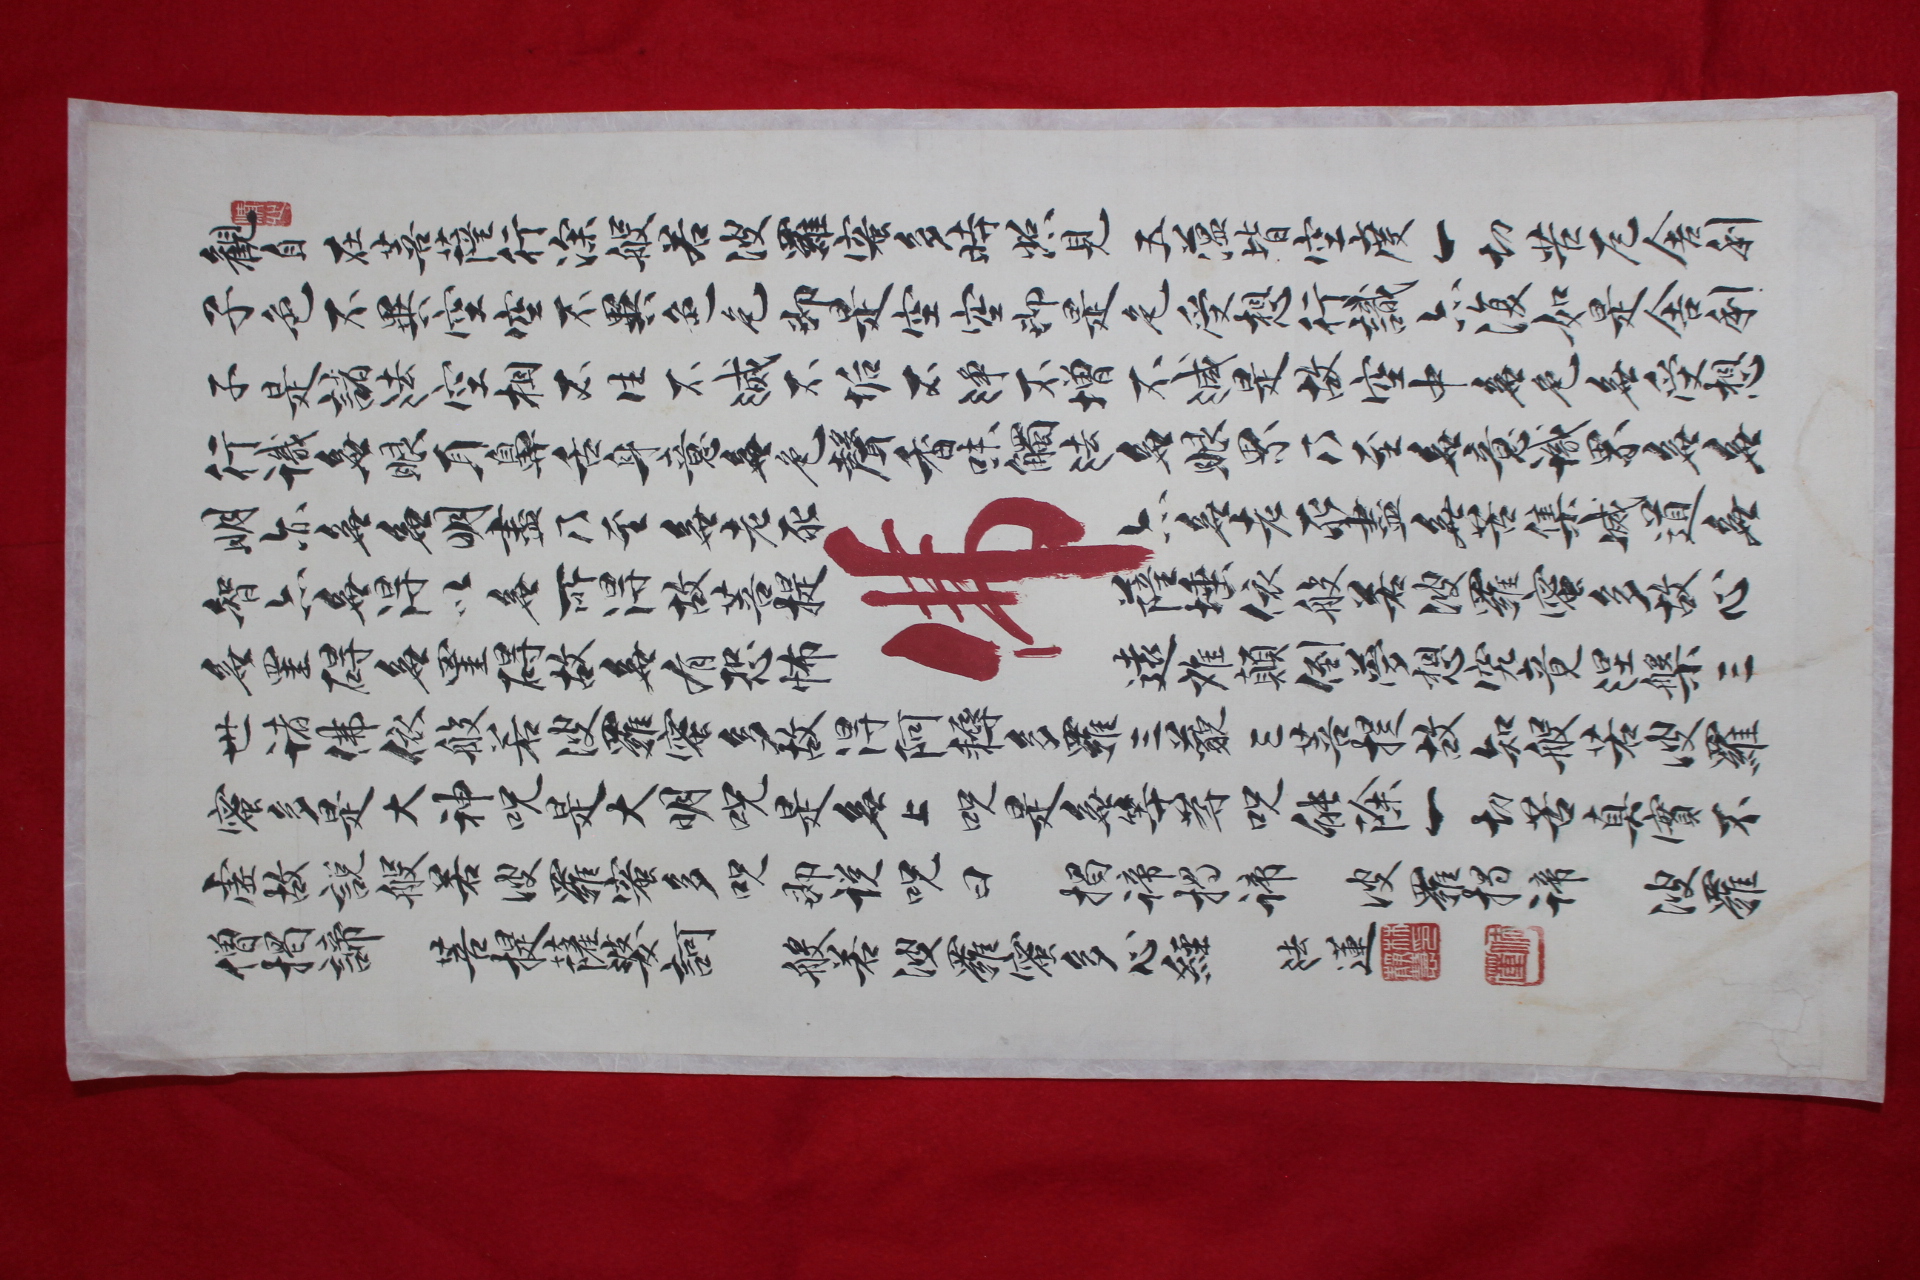 觀自在菩薩行深般若波羅蜜多時照見五蘊皆空度一切苦厄舍利
子色不異空空不異色色即是空空即是色受想行識亦復如是舍利
子是諸法空相不生不滅不垢不淨不增不減是故空中無色無受想
行識無眼耳鼻舌身意無色聲香味觸法無眼界乃至無意識界無無
明亦無無明盡乃至無老死 亦無老死盡無苦集滅道無
智亦無得以無所得故菩提 薩埵依般若波羅蜜多故心
無罣碍無罣碍故無有恐怖 遠離顛倒夢想究竟涅槃三
世諸佛依般若波羅蜜多故得阿耨多羅三藐三菩提故知般若波羅
蜜多是大神咒是大明咒是無上咒是無等等咒能除一切苦真實不
虛故說般若波羅蜜多咒即說咒曰 揭諦揭諦 波羅揭諦 波羅
僧揭諦 菩提薩婆訶 般若波羅蜜多心經 法蓮
佛